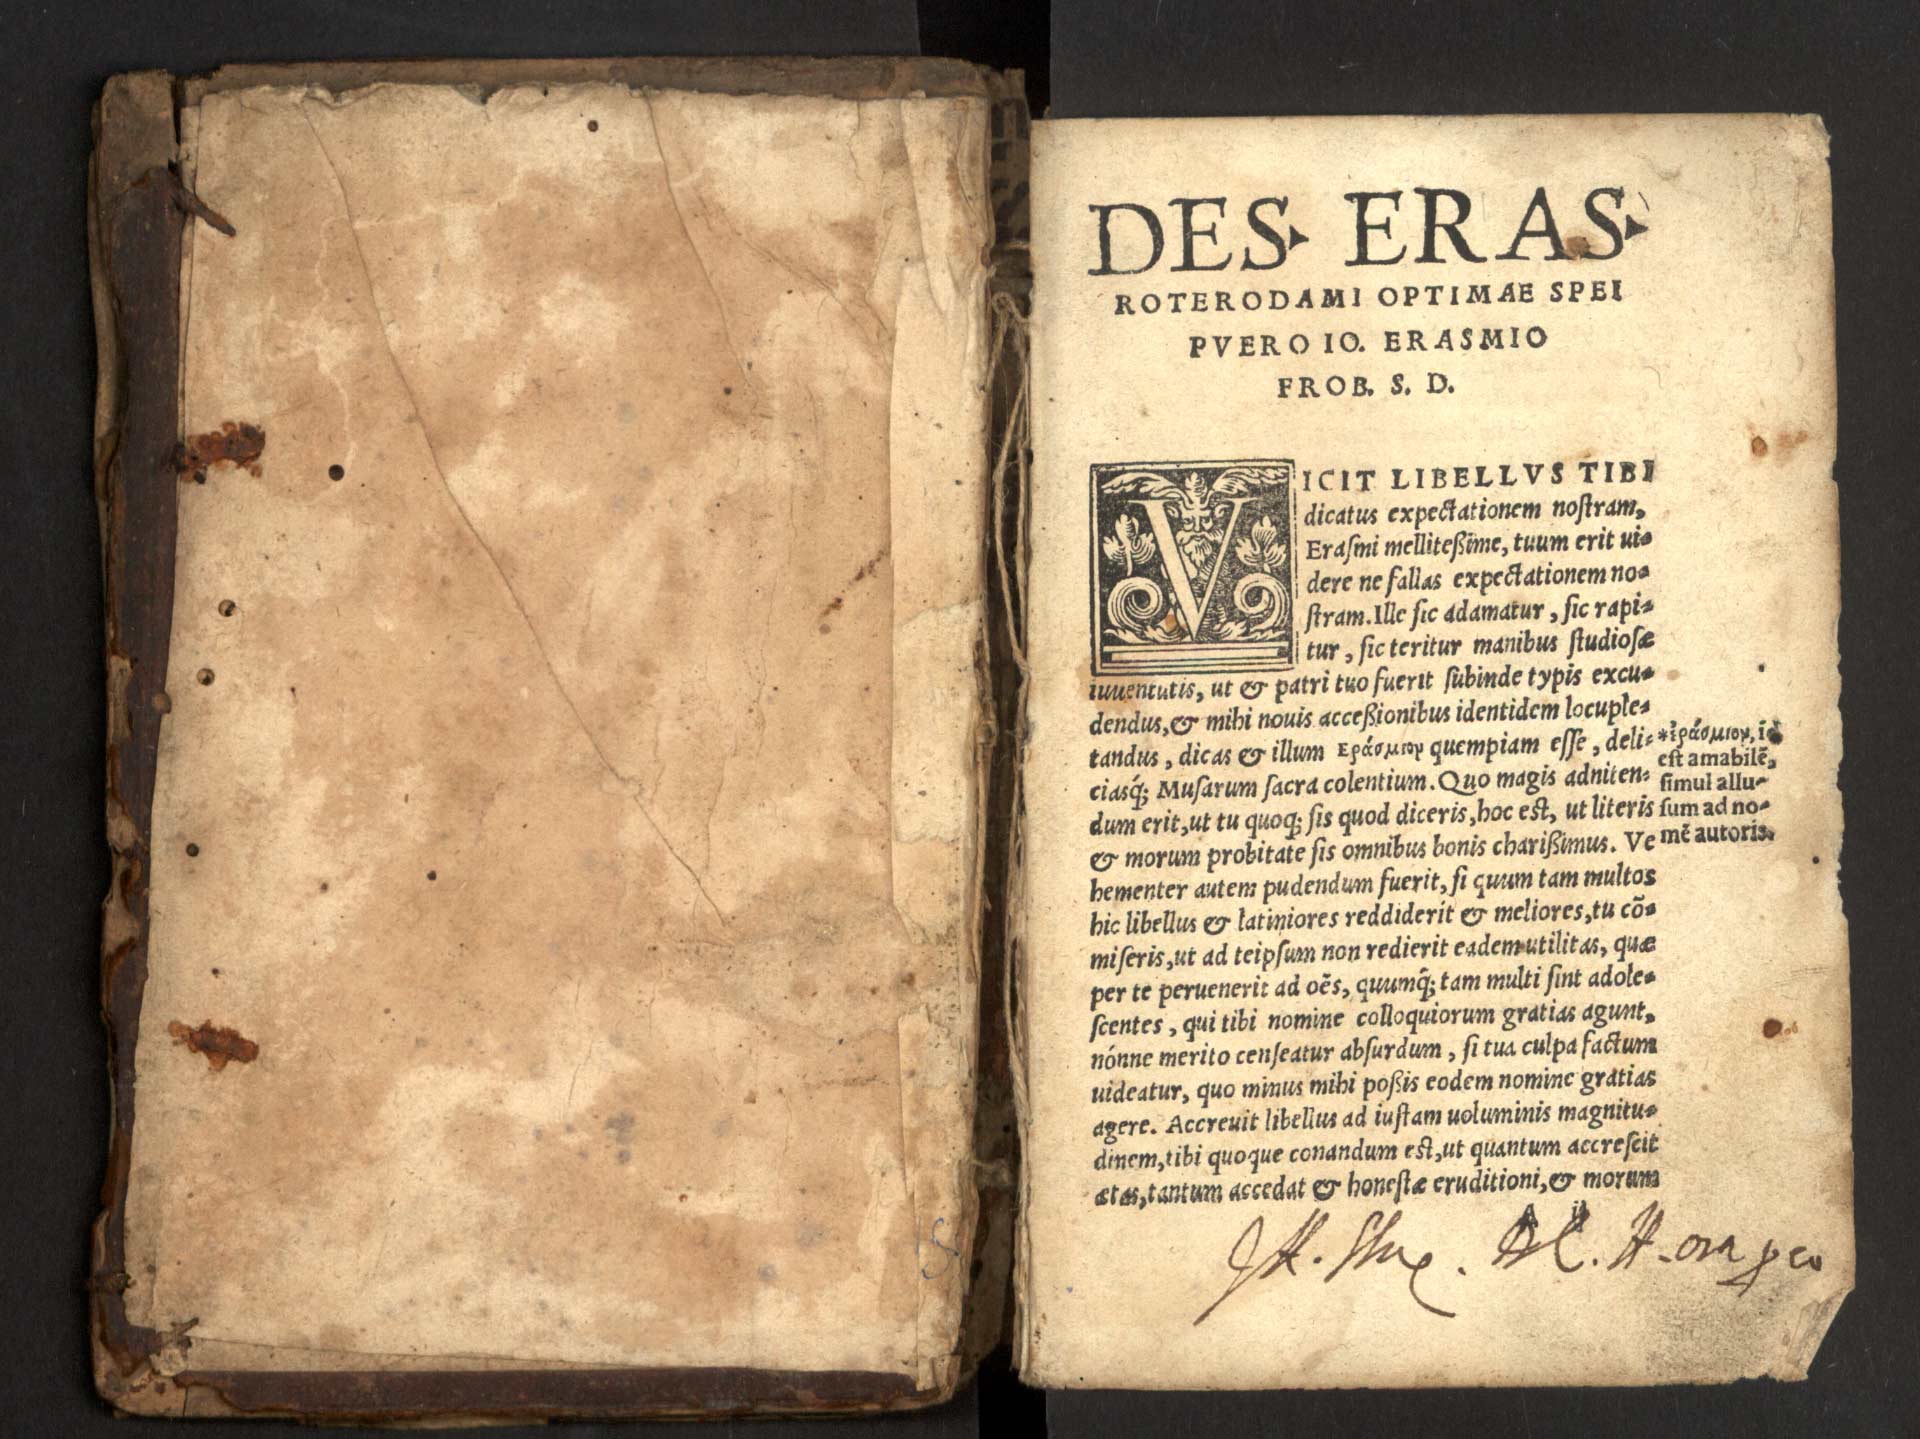 DES. ERAS.
ROTERODAMI OPTIMAE SPEI
PVERO IO. ERASMIO
FROB. S. D.
VICIT LIBELLVS TIBI
dicatus expectationem noſtram,
Eraſmi melliteßime, tuum erit ui-
dere ne fallas expectationem no-
ſtram. Ille ſic adamatur, ſic rapi-
tur, ſic teritur manibus ſtudioſæ
iuuentutis, ut & patri tuo fuerit ſubinde typis excu-
dendus, & mihi nouis acceßionibus identidem locuple-
tandus, dicas & illum Εράσμιον quempiam eſſe, deli-
ciasq́; Muſarum ſacra colentium. Quo magis adniten-
dum erit, ut tu quoq; ſis quod diceris, hoc est, ut literis
& morum probitate ſis omnibus bonis charißimus. Ve
hementer autem pudendum fuerit, ſi quum tam multos
hic libellus & latiniores reddiderit & meliores, tu cõ-
miſeris, ut ad teipſum non redierit eadem utilitas, quæ
per te peruenerit ad oẽs, quumq́; tam multi ſint adole-
ſcentes, qui tibi nomine colloquiorum gratias agunt,
nónne merito cenſeatur abſurdum, ſi tua culpa factum
uideatur, quo minus mihi poßis eodem nomine gratias
agere. Accreuit libellus ad iuſtam uoluminis magnitu-
dinem, tibi quoque conandum est, ut quantum accreſcit
ætas, tantum accedat & honeſtæ eruditioni, & morum
*ἐράσμιον, id
eſt amabilẽ,
ſimul allu-
ſum ad no-
mẽ autoris.